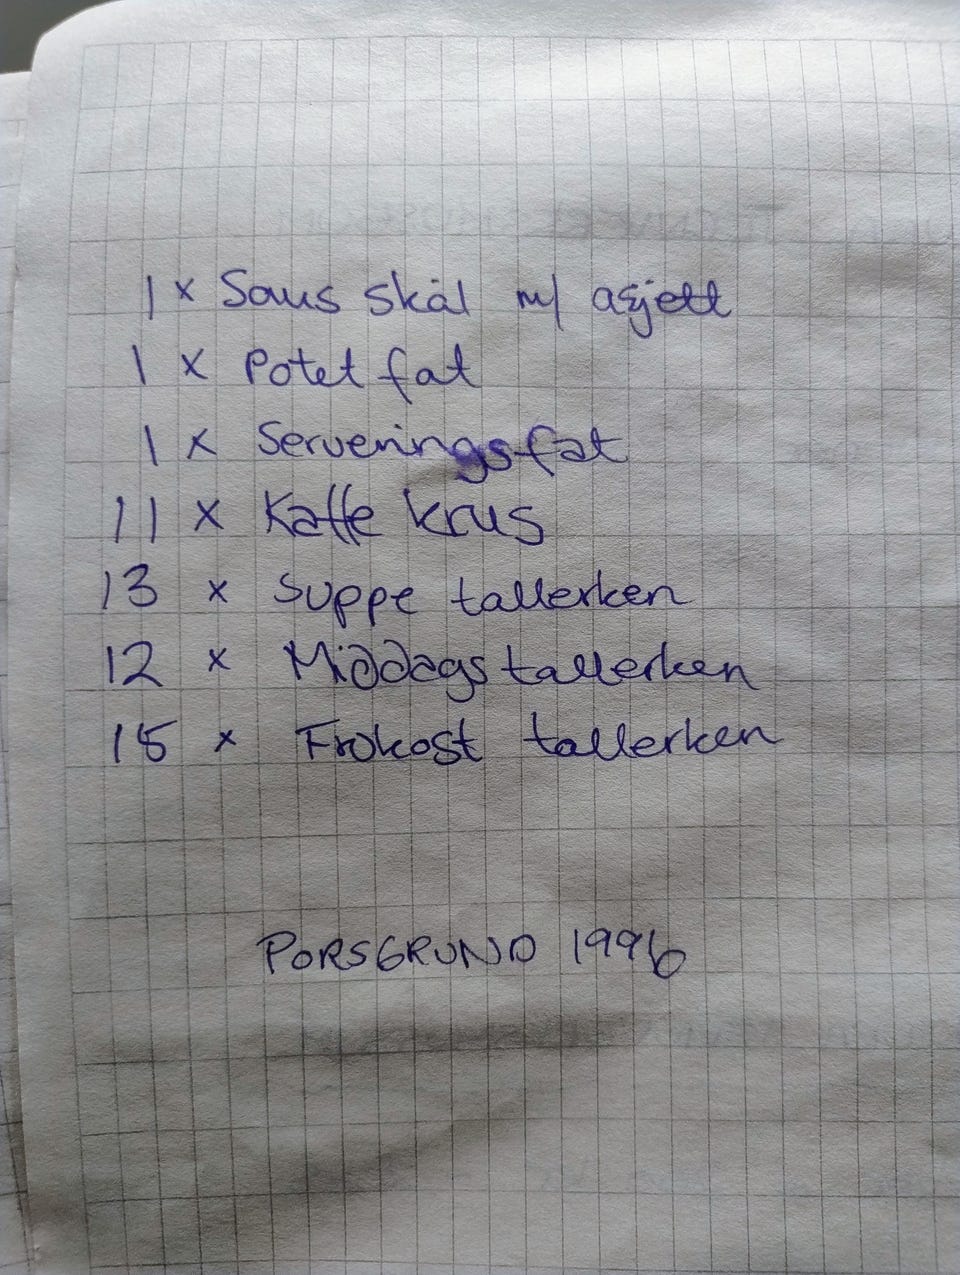 1 x Saus skål m/ asjett
1 x Potet fat
1 x Serveringsfat
11 x Kaffe krus
13 x Suppe tallerken
12 x Middags tallerken
15 x Frokost tallerken
PORSGRUND 1996